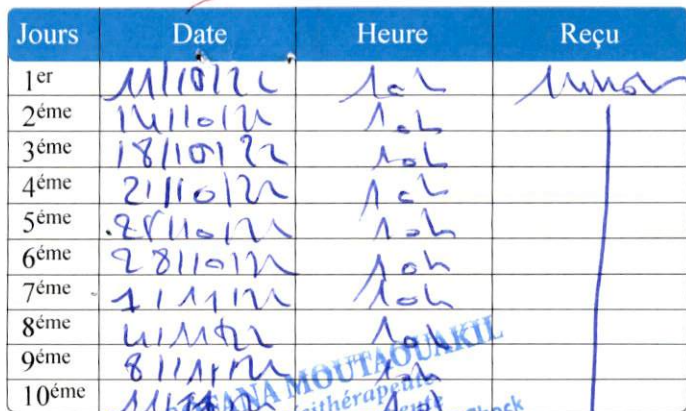 Jours Date Heure Reçu
1er 11/10/22 10h
2éme 14/10/22 10h
3éme 18/10/22 10h
4éme 21/10/22 10h
5éme 25/10/22 10h
6éme 28/10/22 10h
7éme 1/11/22 10h
8éme 4/11/22 10h
9éme 8/11/22 10h
MOUTAOUAKIL
10éme 11/11/22 10h